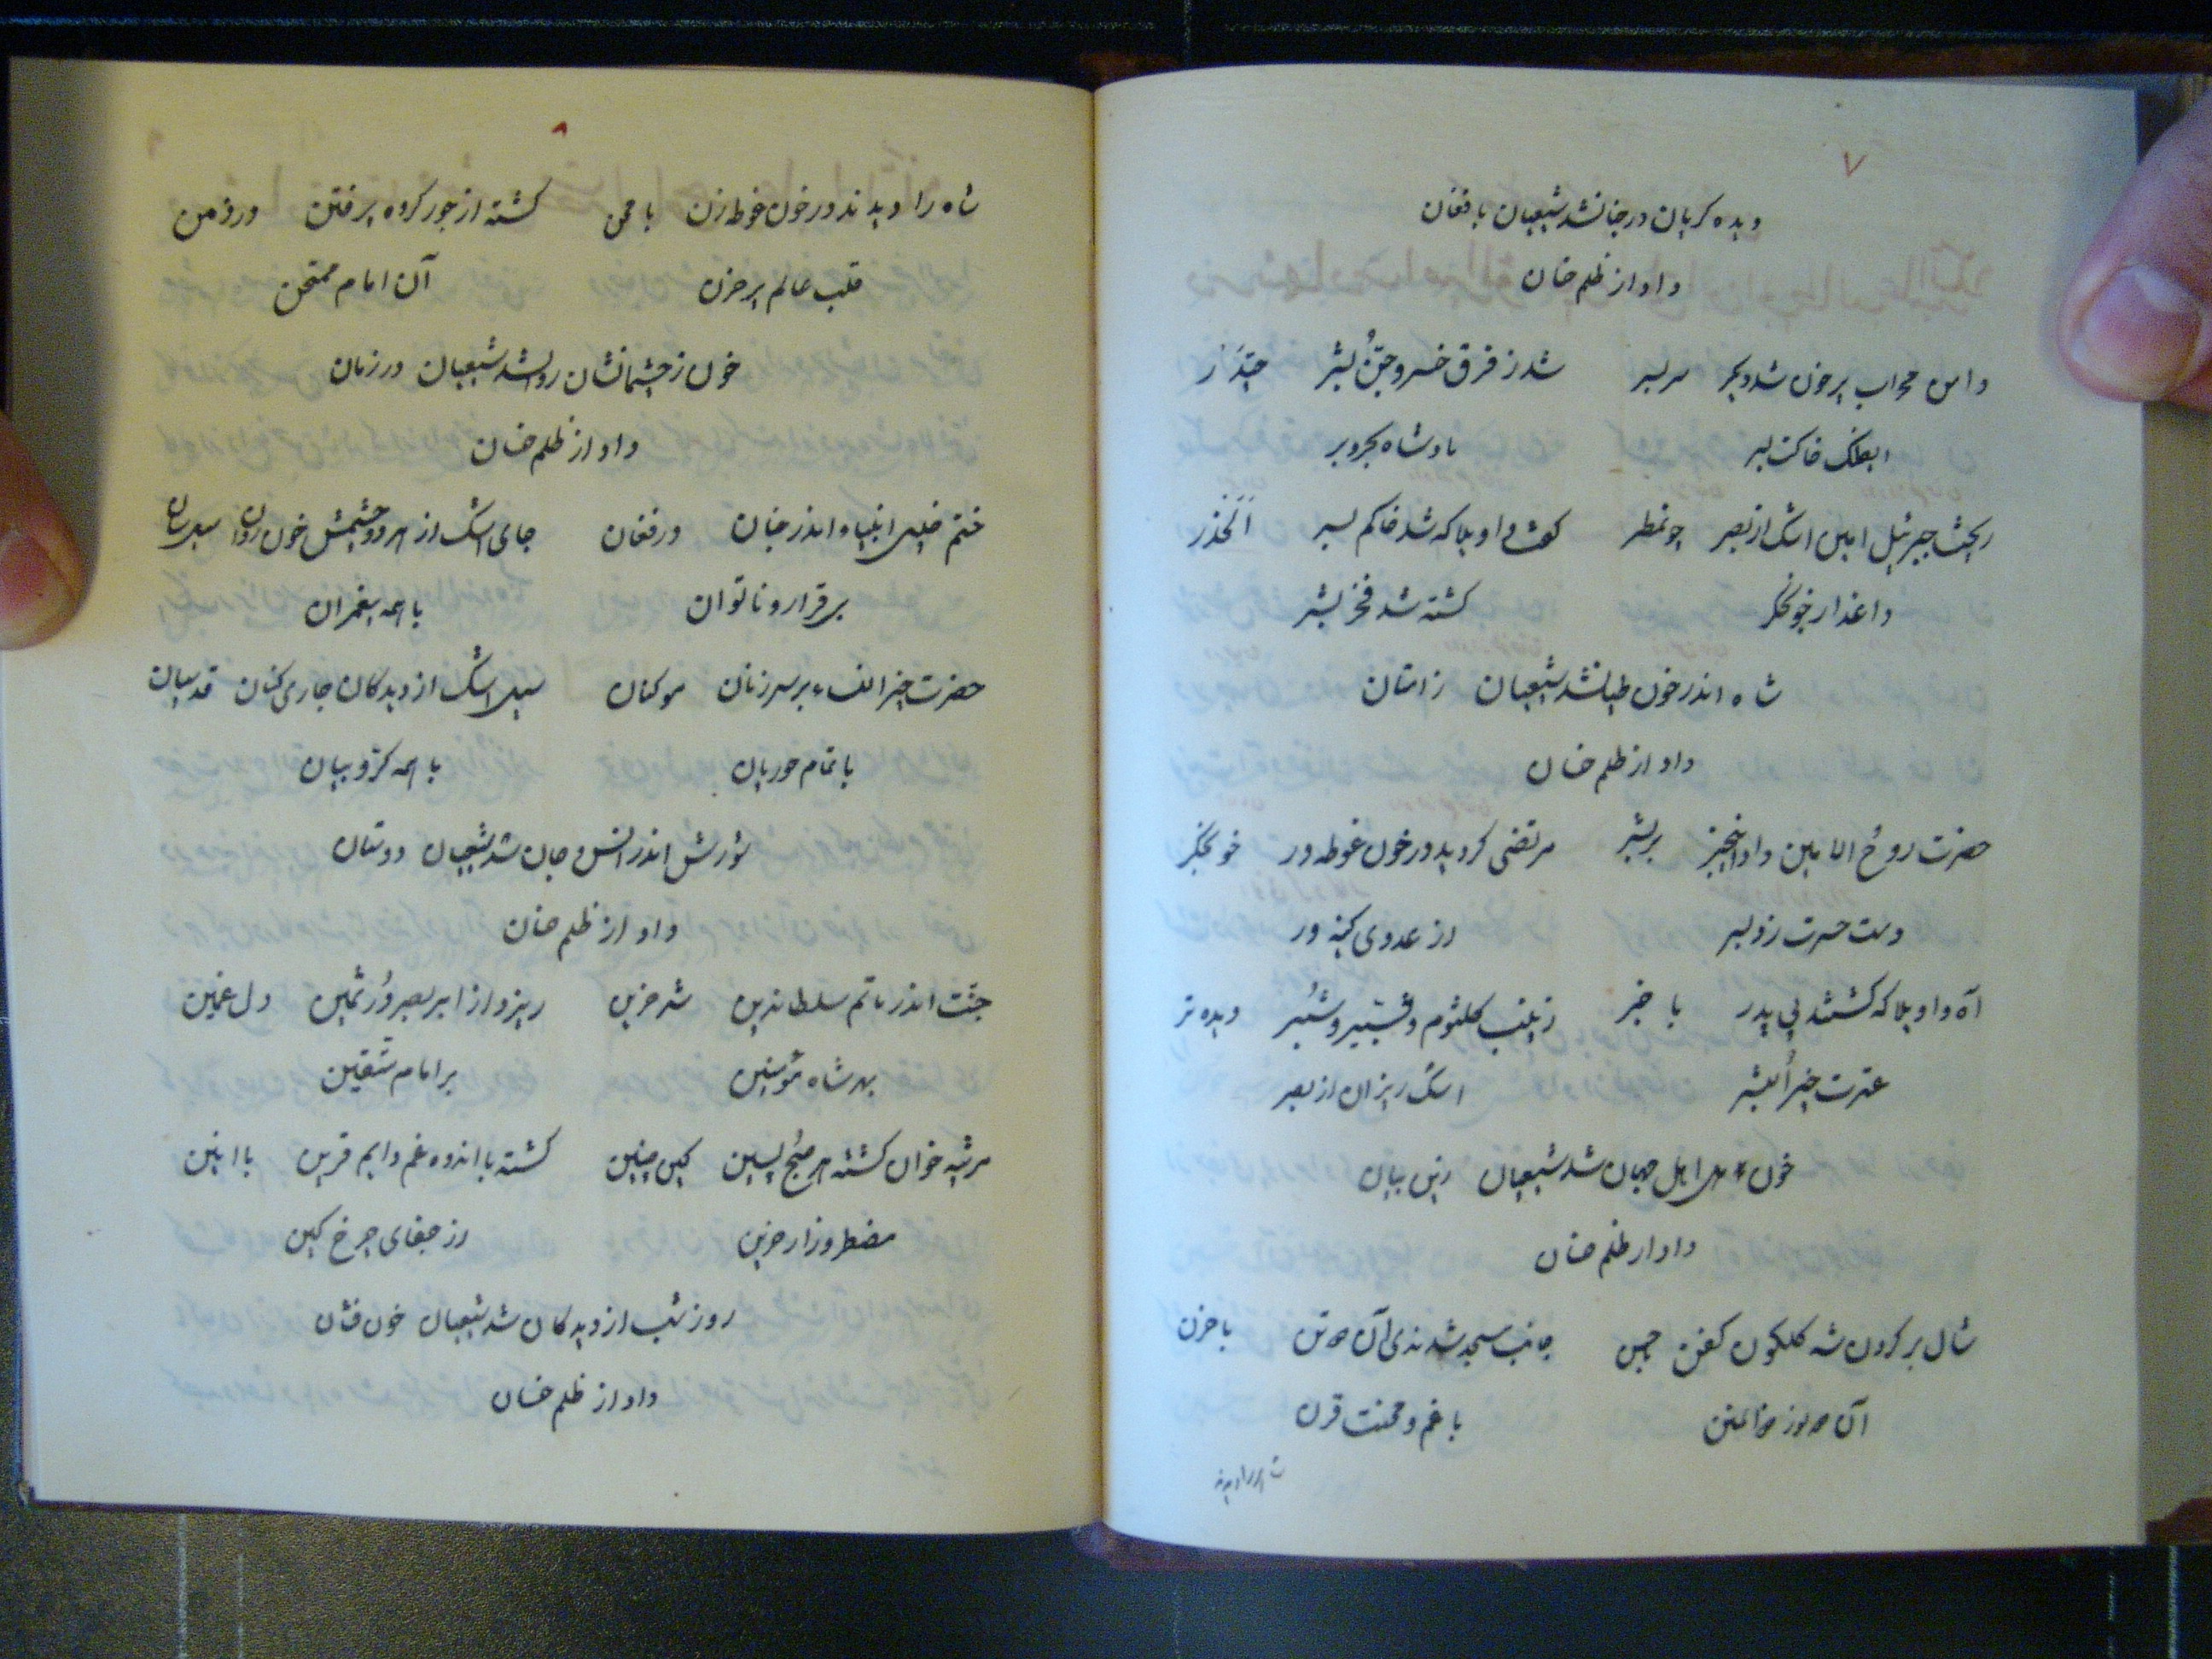 ۷
دیده گریان در جنانشد شیعیان با فغان
داد از ظلم خسان
دامن محراب پر خون شد دیگر سر بسر شد ز فرق خسرو جنّ و بشر حیدر
ایفلک خاکت بسر پادشاه بحر و بر
ریخت جبرئیل امین اشک از بصر چونمطر گفت واویلا که شد خاکم بسر الحذر
داغدار خونجگر کشته شد فخر بشر
شاه اندر خون طپانشد شیعیان زامتان
داد از ظلم خسان
حضرت روح الامین داد اینخبر بر بشر مرتضی گردید در خون غوطه‌ور خونجگر
دست حسرت زد بسر از عدوی کینه ور
آه واویلا که گشتند بی پدر با خبر زینب کلثوم و شبّیر و شبر دیده تر
عترت خیر البشر اشک ریزان از بصر
خون دل اهل جهان شد شیعیان زین بیان
داد از ظلم خسان
شال بر گردن شه گلگون کفن حسن جانب مسجد شدندی آن دو تن با حزن
آن دو نور ذوالمنن با غم و محنت قرن
شاه را دیدند
۸
شاه را دیدند در خون غوطه زن با محن کشته از جور گروه پر فتن در زمن
قلب عالم پر حزن آن امام ممتحن
خون ز چشمانشان روانشد شیعیان در زمان
داد از ظلم خسان
ختم خیل انبیاء اندر جنان در فغان جای اشک از هر دو چشمش خون روان سیل سان
بی قرار و ناتوان با همه پیغمبران
حضرت خیر النساء بر سر زنان مو کنان سیل اشک از دیدگان جاری کنان قدسیان
با تمام حوریان با همه کرّوبیان
شورش اندر انس و جان شد شیعیان دوستان
داد از ظلم خسان
جنّت اندر ماتم سلطاندین شد حزین ریزد از ابر بصر دُر ثمین دل غمین
بهر شاه مؤمنین بر امام متّقین
مرثیه خوان گشته هر صبح پسین کین چنین گشته با اندوه غم دایم قرین با انین
مضطر و زار حزین از جفای چرخ کین
روز شب از دیدگان شد شیعیان خون فشان
داد از ظلم خسان